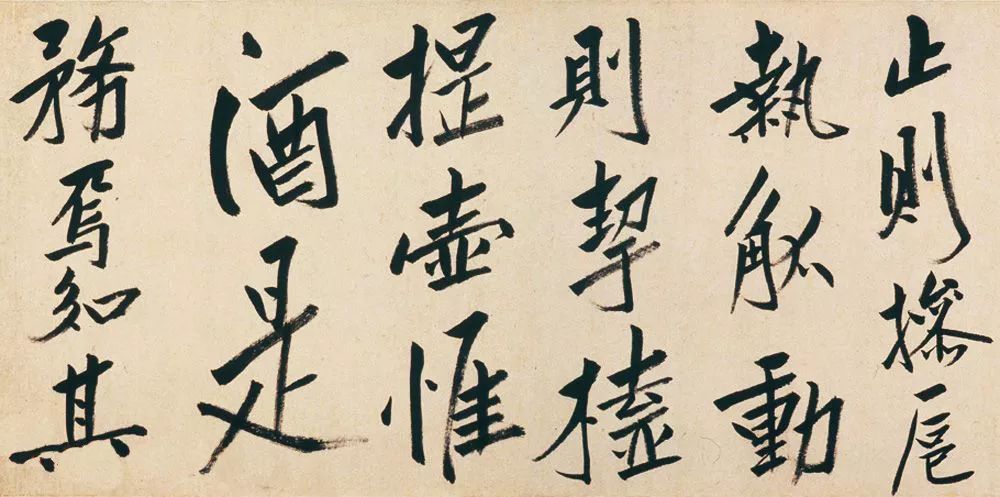 止則操巵
執觚動
則挈榼
提壺惟
酒是
務焉知其